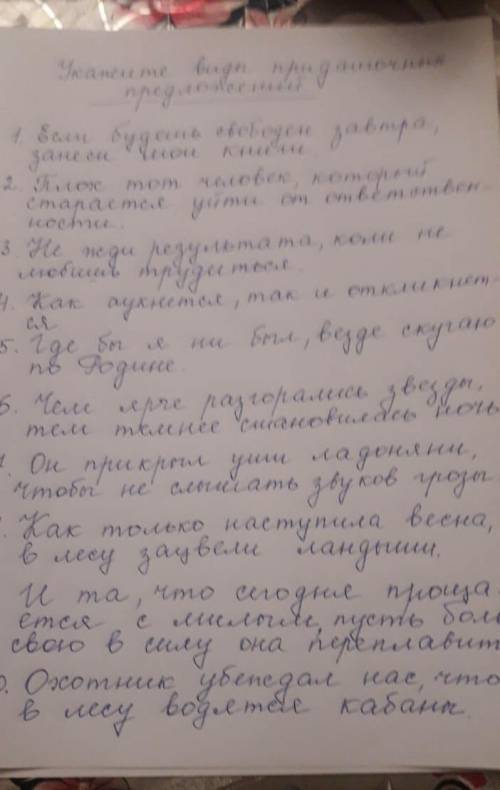 Укажите виды придаточных
предложений
1. Если будешь свободен завтра,
занеси мои книги.
2. Плох тот человек, который
старается уйти от ответствен-
ности.
3. Не жди результата, коли не
любишь трудиться.
4. Как аукнется, так и откликнет-
ся
5. Где бы я ни был, везде скучаю
по Родине.
6. Чем ярче разгорались звезды,
тем темнее становилась ночь
Он прикрыл уши ладонями,
чтобы не слышать звуков грозы.
Как только наступила весна,
в лесу зацвели ландыши.
И та, что сегодня проща-
ется с милым, пусть боль
свою в силу она переплавит
0. Охотник убеждал нас, что
в лесу водятся кабаны.